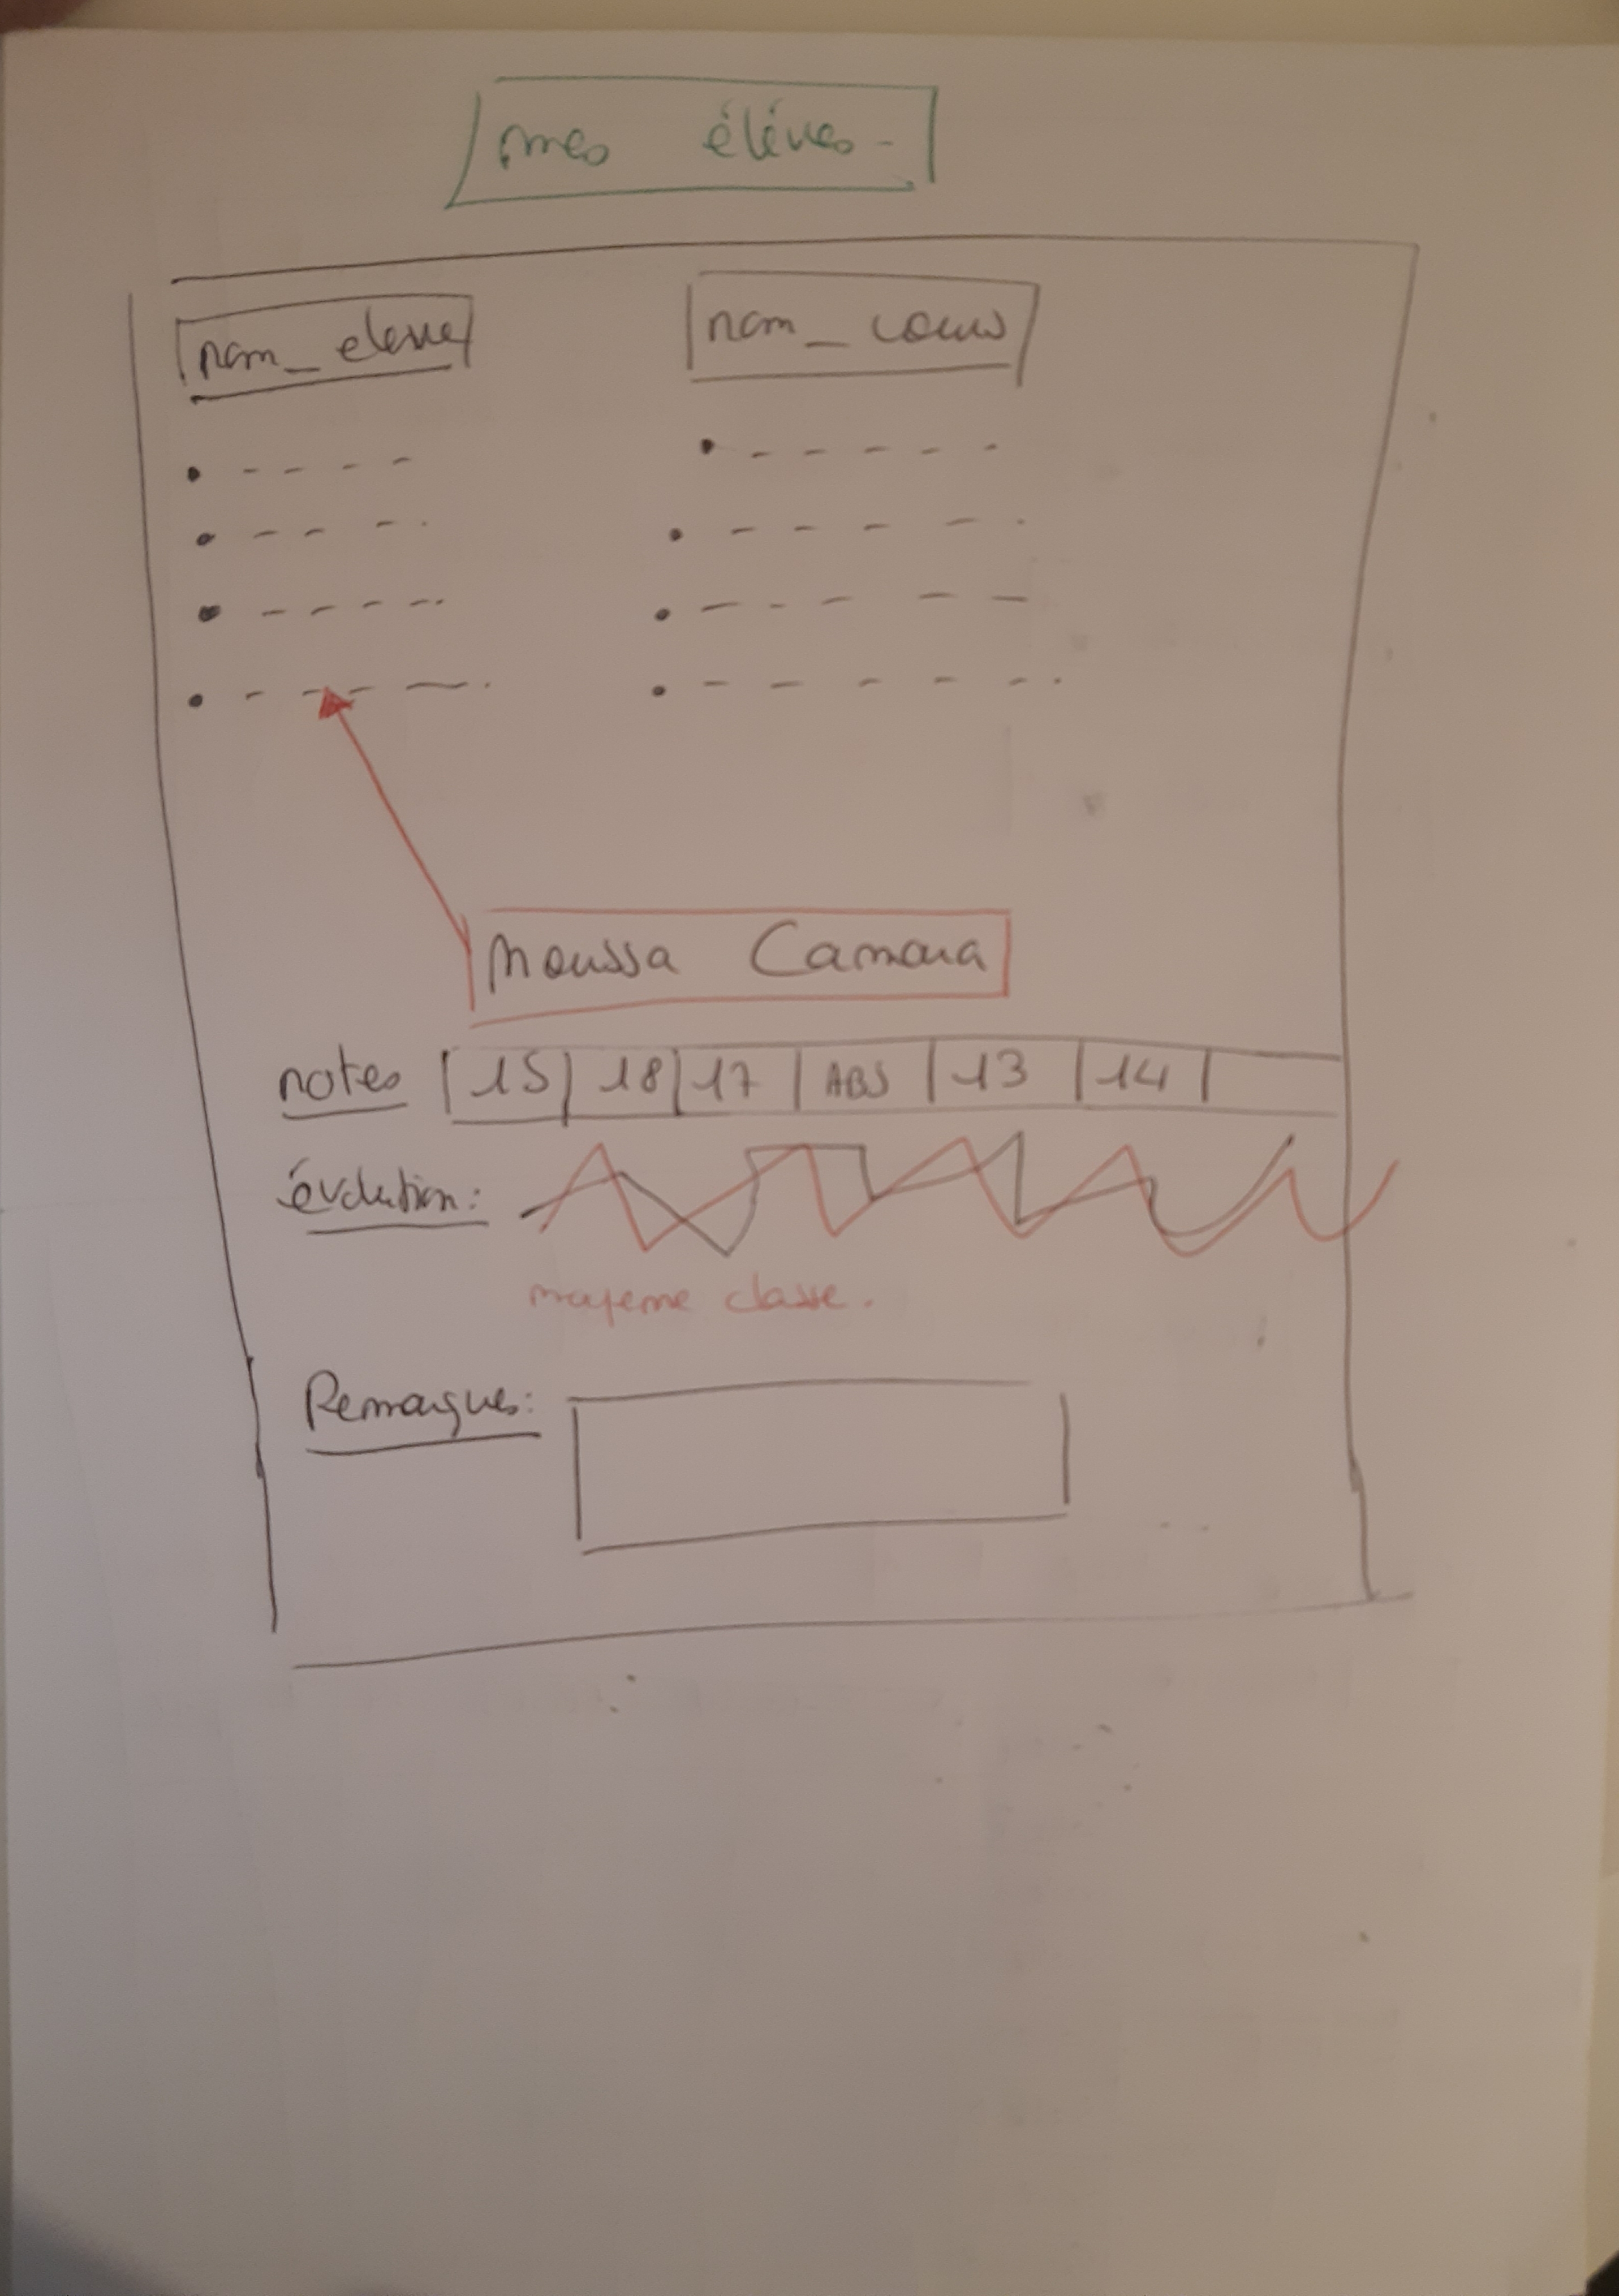 mes élèves
nom_eleve nom_cours
Moussa Camara
notes 15 18 17 ABS 13 14
évolution:
moyenne classe.
Remarques: